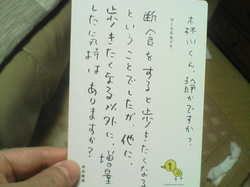 くん、かですか?
断食をすると歩きたくなる
ということでしたが、他に、
歩きたくなる以外に、増量
した気持はありますか?